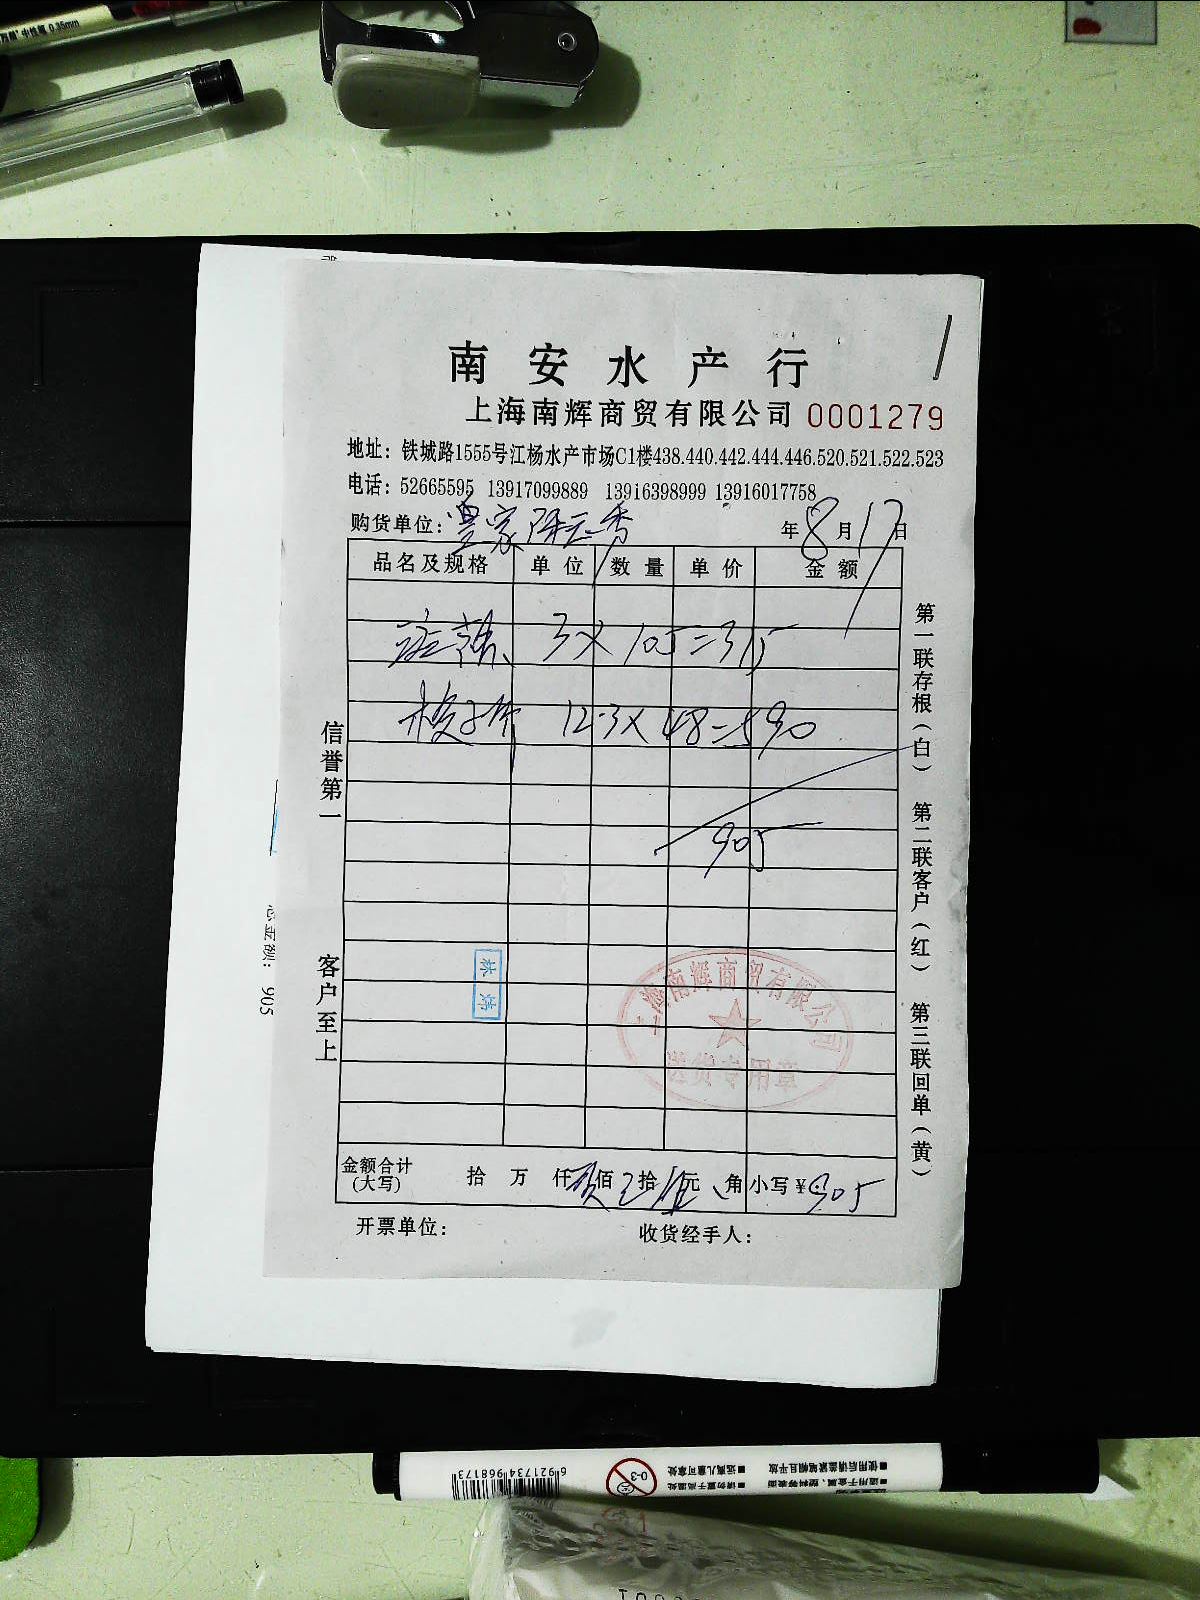 中性笔 0.35mm
南安水产行
上海南辉商贸有限公司 0001279
地址：铁城路1555号江杨水产市场C1楼438.440.442.444.446.520.521.522.523
电话：52665595 13917099889 13916398999 13916017758
购货单位：皇家 秀 年8月17日
品名及规格 单位 数量 单价 金额
3×105=315
梭子 12.3×48=590
905
信誉第一
客户至上
第一联存根（白）
第二联客户（红）
第三联回单（黄）
上海南辉商贸有限公司
送货专用章
金额合计（大写） 拾 万 仟 玖佰 拾伍元 角 小写¥：905
开票单位： 收货经手人：
总金额：905
6 921734 968173
0-3
■请勿置于高温处
■远离儿童可拿处
■使用后请盖紧笔帽且平放